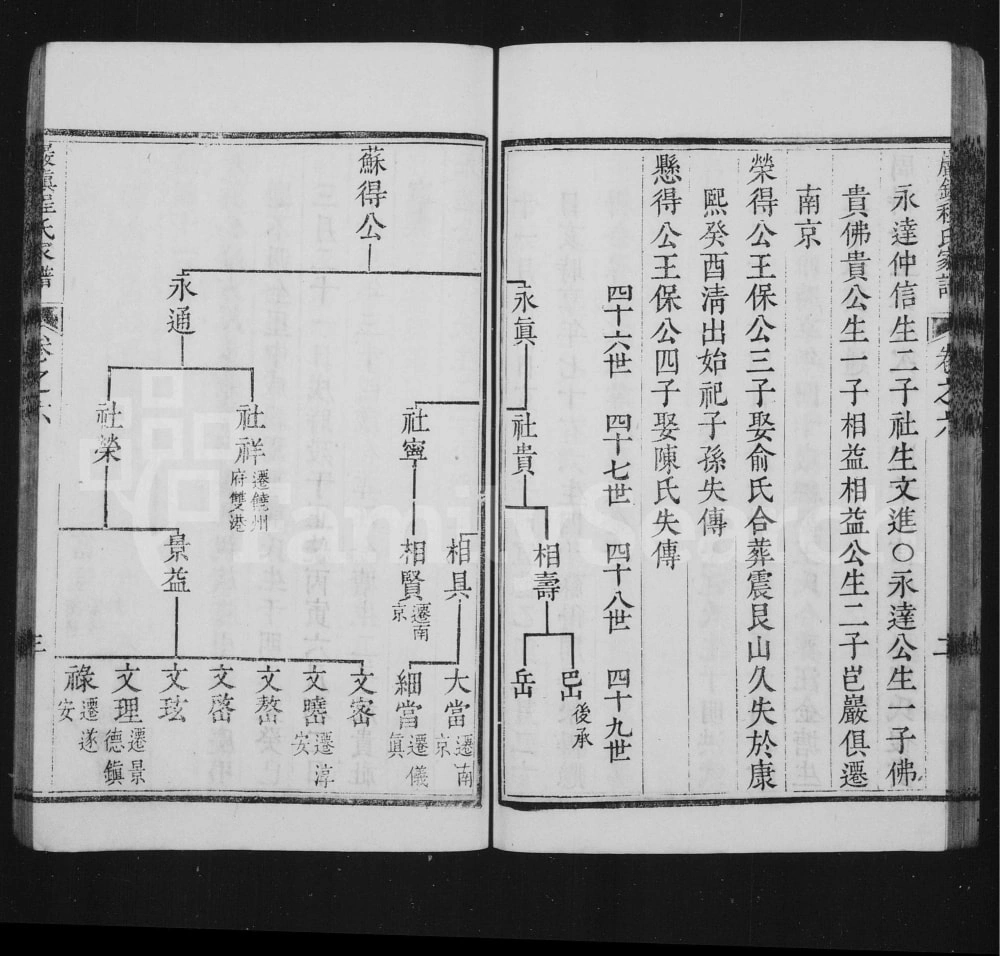 永達仲信生二子社生文進〇永達公生一子佛
貴佛貴公生一子相益相益公生二子岜巖俱遷
南京
榮得公王保公三子娶俞氏合葬震艮山久失於康
熙癸酉淸出始祀子孫失傳
懸得公王保公四子娶陳氏失傳
四十六世
四十七世
四十八世
四十九世
永眞
社貴
相壽
後承
岳
蘇得公
永通
社寧
社祥
遷饒州
府雙港
社榮
相具
相賢
遷南
京
景益
大當
遷南
京
細當
遷儀
眞
文密
文曉
遷淳
安
文嶅
文啓
文玹
文理
遷景
德鎭
祿
遷遂
安
巖鎭程氏家譜
卷之六
三